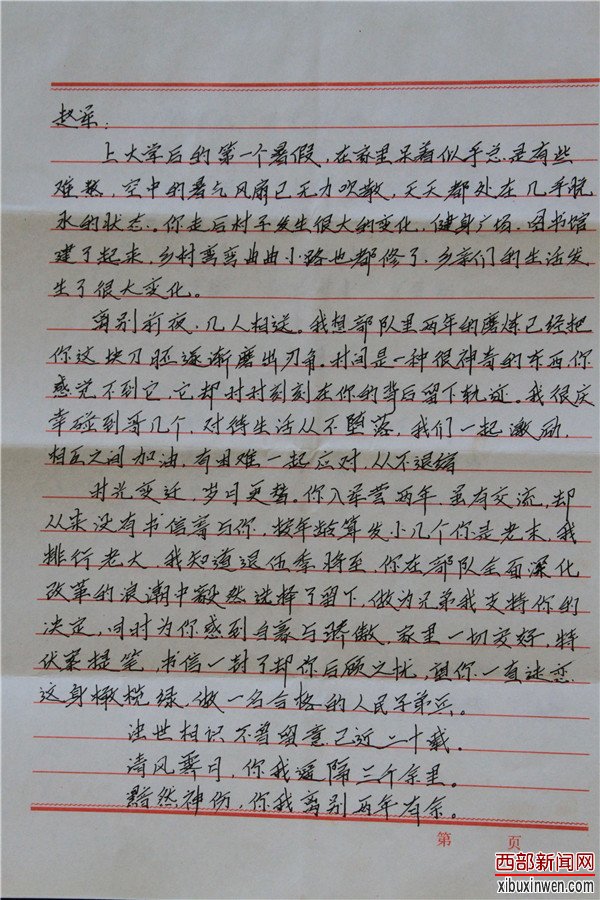 赵军:
上大学后的第一个暑假,在家里呆着似乎总是有些
难熬,空中的暑气风扇已无力吹散,天天都处在几乎脱
水的状态。你走后村子发生很大的变化,健身广场,图书馆
建了起来,乡村弯弯曲曲小路也都修了,乡亲们的生活发
生了很大变化。
离别前夜,几人相送。我想部队里两年的磨炼已经把
你这块刀胚逐渐磨出刃角。时间是一种很神奇的东西,你
感觉不到它,它却时时刻刻在你的背后留下轨迹。我很庆
幸碰到哥几个,对待生活从不堕落,我们一起激励,
相互之间加油,有困难一起应对,从不退缩
时光变迁,岁月更替,你入军营两年,虽有交流,却
从来没有书信寄与你,按年龄算发小几个你是老末,我
排行老大,我知道退伍季将至,你在部队全面深化
改革的浪潮中毅然选择了留下,做为兄弟我支持你的
决定,同时为你感到自豪与骄傲,家里一切安好,特
伏案提笔,书信一封了却你后顾之忧,望你一直迷恋
这身橄榄绿,做一名合格的人民子弟兵。
浊世相识不曾留意已近二十载。
清风霁月,你我遥隔三千余里。
黯然神伤,你我离别两年有余。
第 页
西部新闻网
xibuxinwen.com